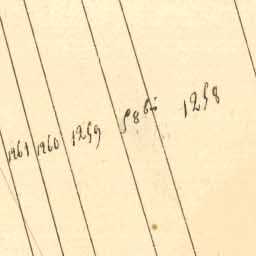 1261 1260 1259 1258